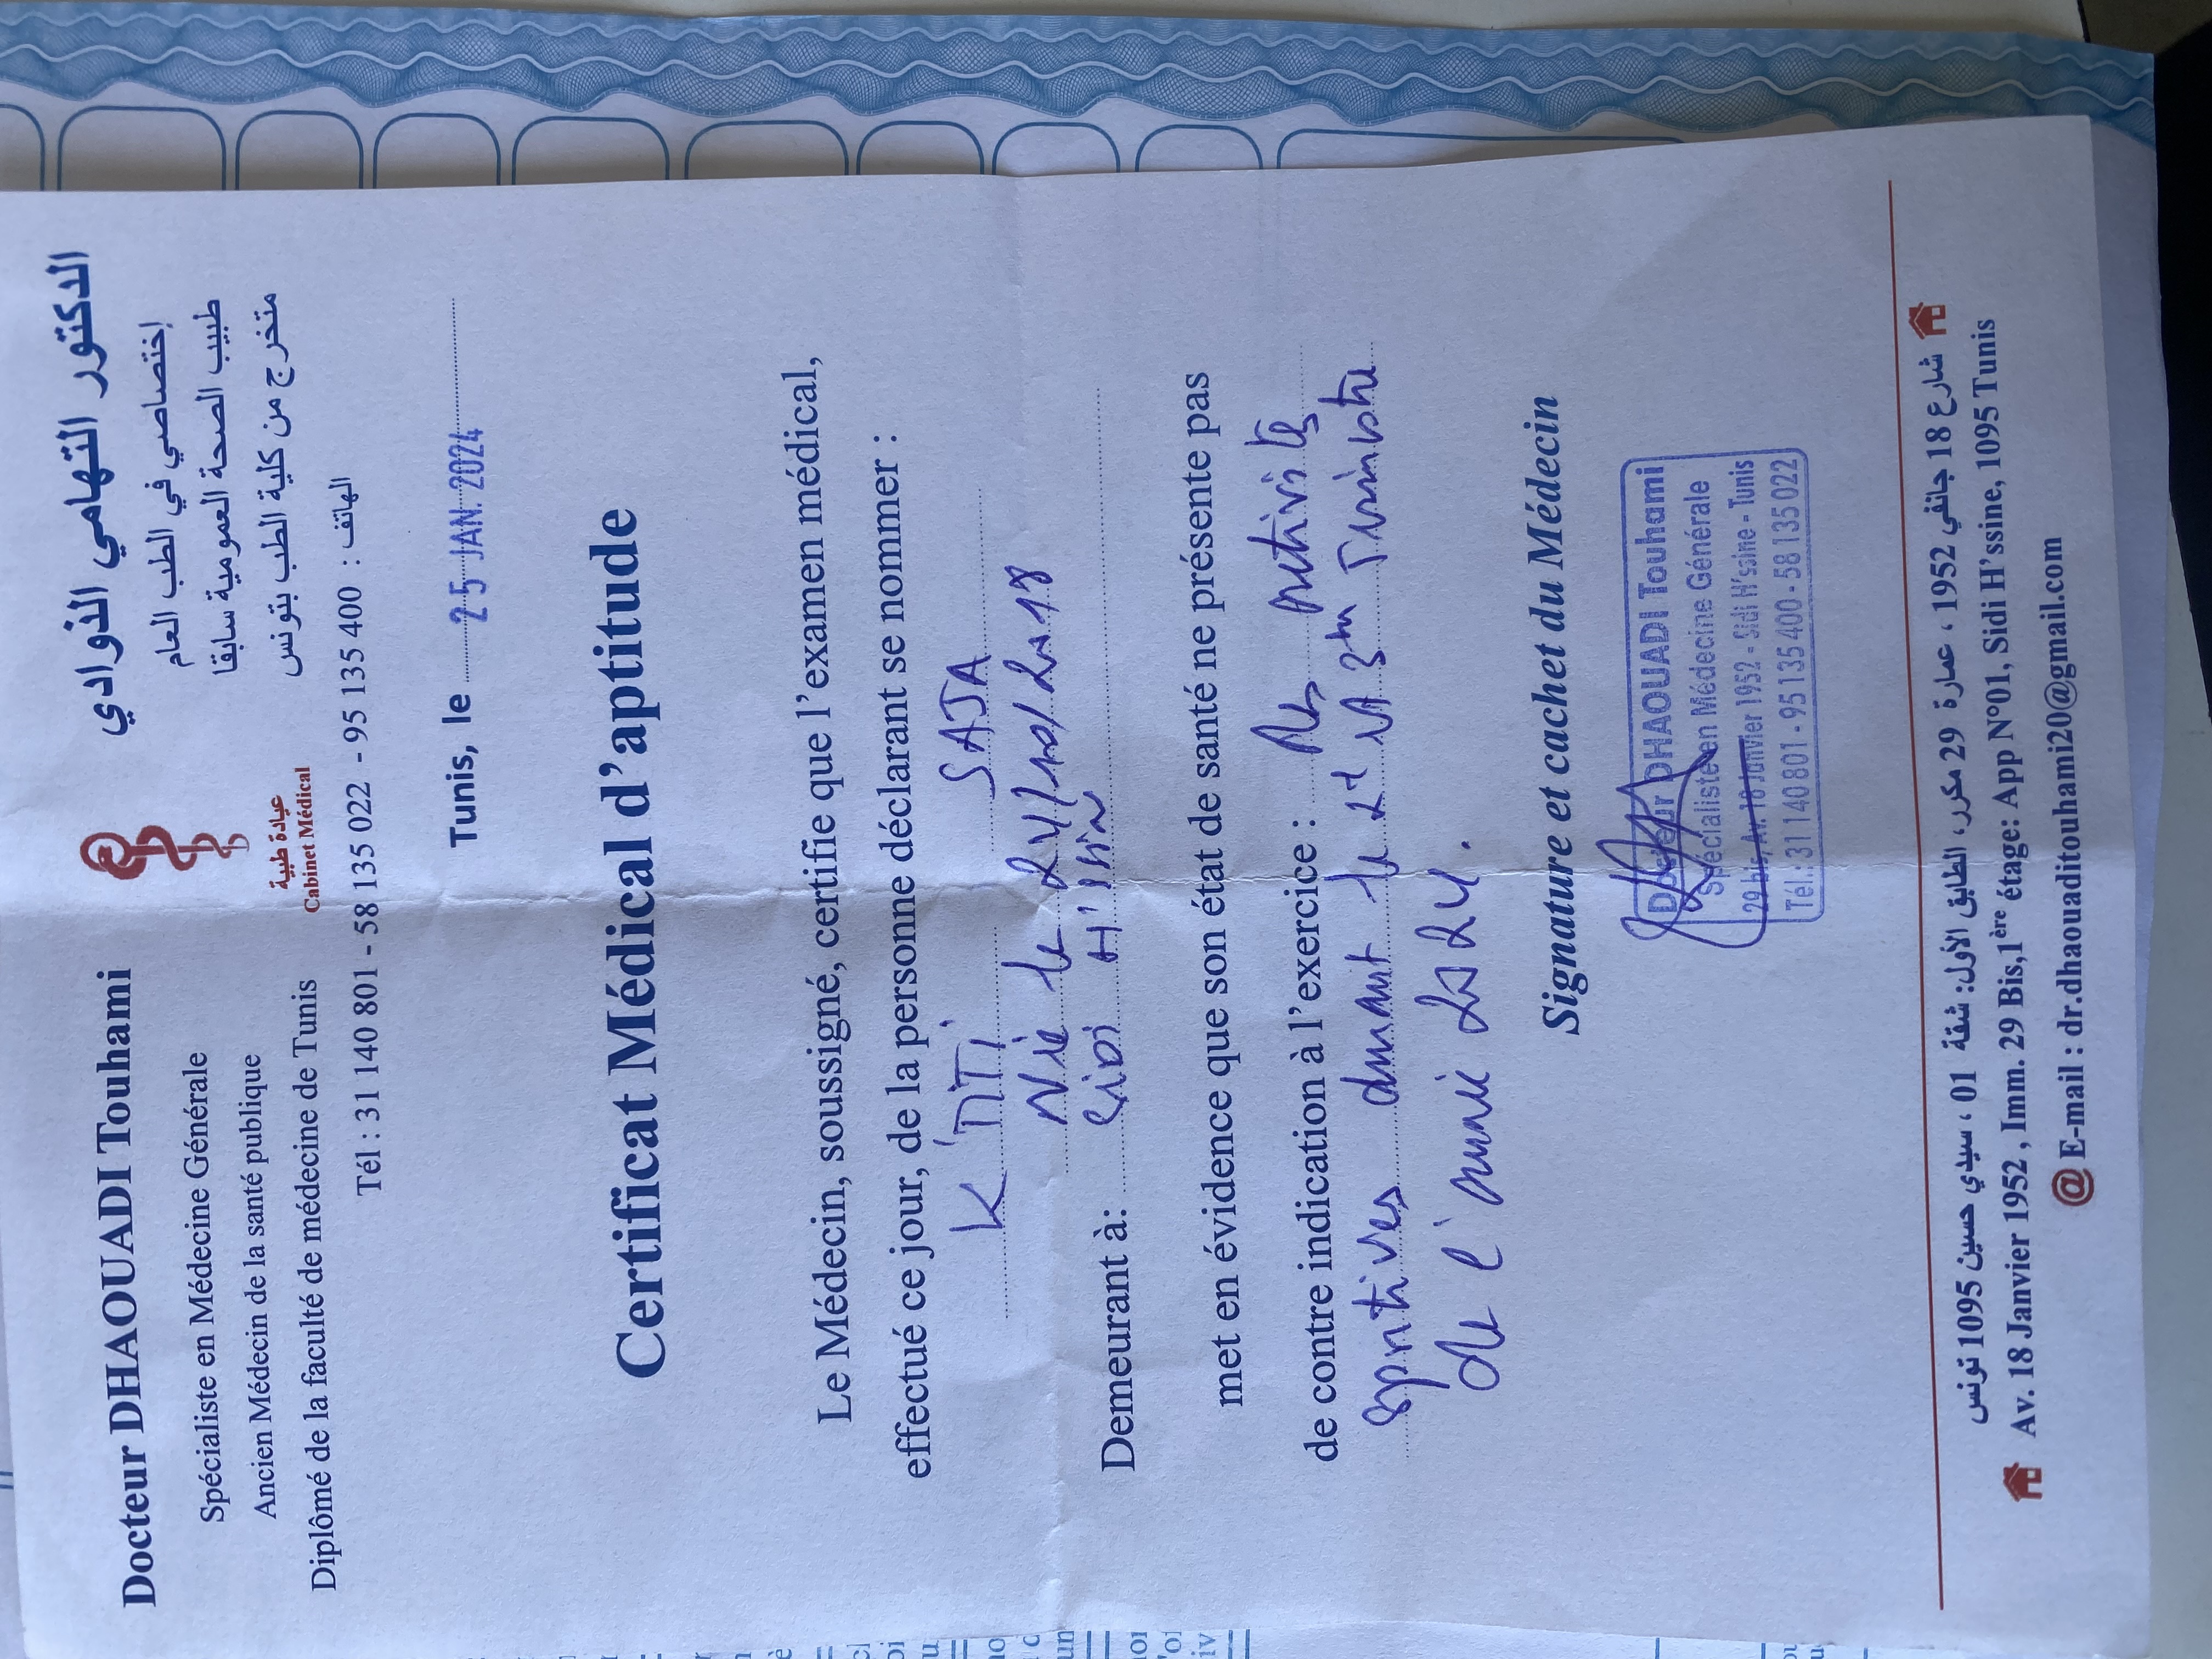 Docteur DHAOUADI Touhami
Spécialiste en Médecine Générale
Ancien Médecin de la santé publique
Diplômé de la faculté de médecine de Tunis
الدكتور التهامي الذوادي
إختصاصي في الطب العام
طبيب الصحة العمومية سابقا
متخرج من كلية الطب بتونس
عيادة طبية
Cabinet Médical
Tél : 31 140 801 - 58 135 022 - 95 135 400 : الهاتف
Tunis, le 25 JAN. 2024
Certificat Médical d'aptitude
Le Médecin, soussigné, certifie que l'examen médical,
effectué ce jour, de la personne déclarant se nommer :
SAJA
Née le 24/
Demeurant à: Sidi H'
met en évidence que son état de santé ne présente pas
de contre indication à l'exercice : des activités
sportives durant le et Trimestre
de l'année 2024.
Signature et cachet du Médecin
Docteur DHAOUADI Touhami
Spécialiste en Médecine Générale
29 bis, Av. 18 Janvier 1952 - Sidi H'ssine - Tunis
Tél.: 31 140 801 - 95 135 400 - 58 135 022
شارع 18 جانفي 1952 ، عمارة 29 مكرر، الطابق الأول: شقة 01 ، سيدي حسين 1095 تونس
Av. 18 Janvier 1952 , Imm. 29 Bis,1ère étage: App N°01, Sidi H'ssine, 1095 Tunis
@ E-mail : dr.dhaouaditouhami20@gmail.com